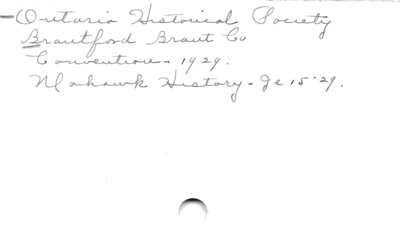 - Ontario Historical Society
Brantford Brant Co
Convention - 1929.
Mohawk History - Je 15 '29.